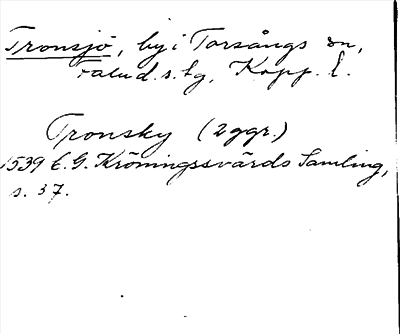 Tronsjö, by i Torsångs sn,
Falu d. s. tg, Kopp. l.
Tronsky (2 ggr.)
1539 C. G. Kröningssvärds Samling,
s. 37.